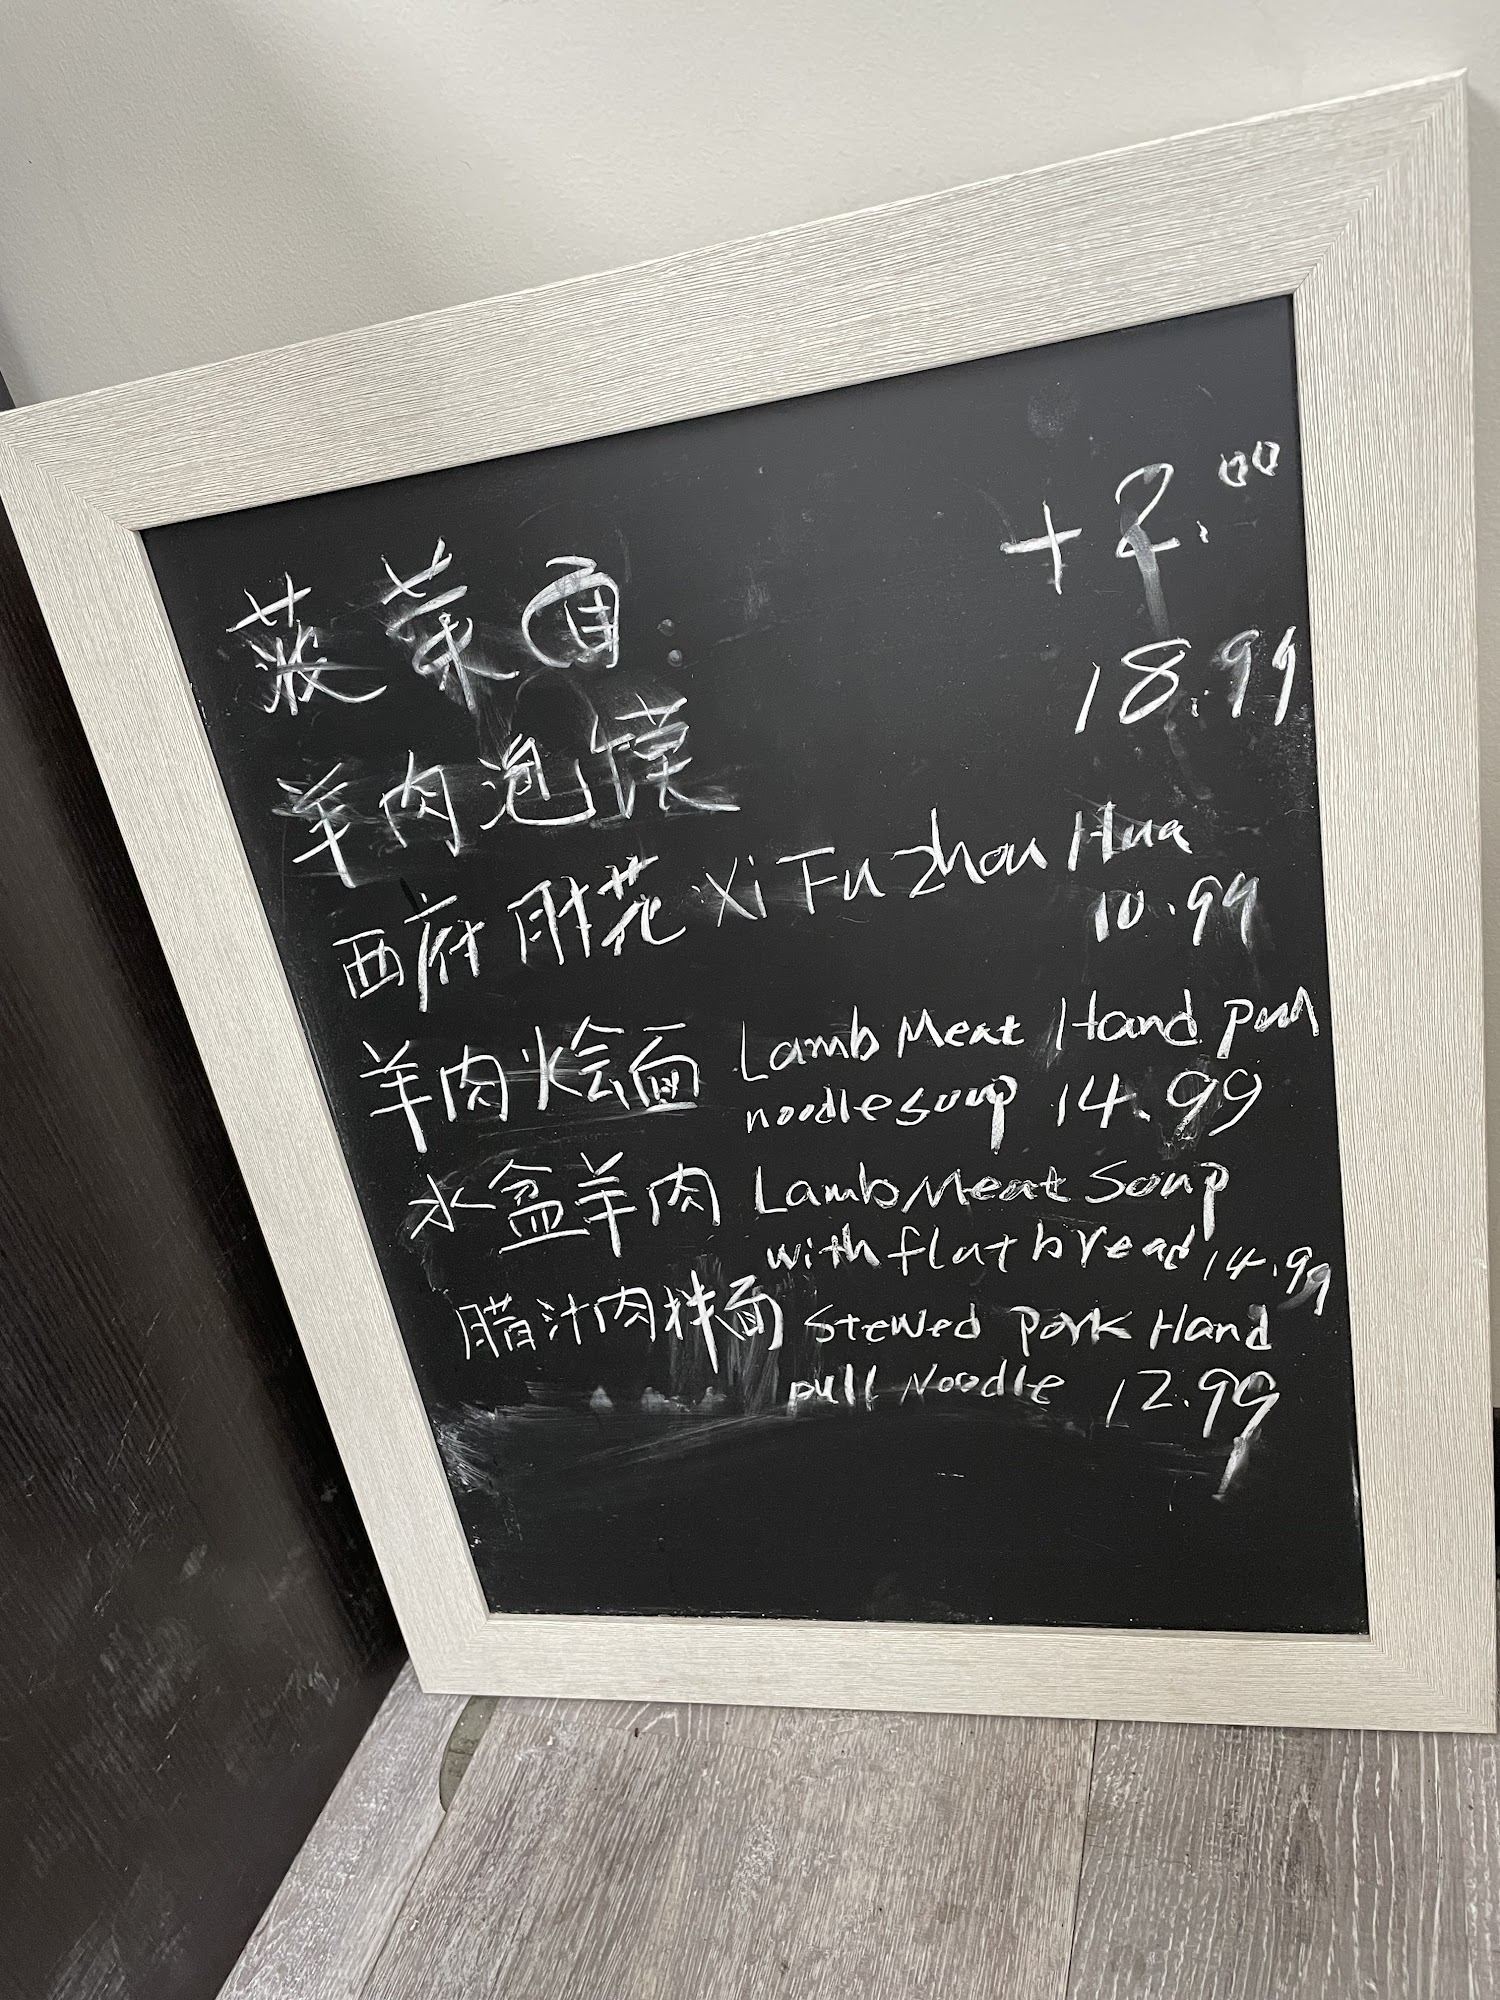 菠菜面 +2.00
羊肉泡馍 18.99
西府肘花 Xi Fu Zhou Hua
10.99
羊肉烩面 Lamb Meat Hand pull
noodle soup 14.99
水盆羊肉 Lamb Meat Soup
with flat bread 14.99
腊汁肉拌面 Stewed Pork Hand
pull Noodle 12.99